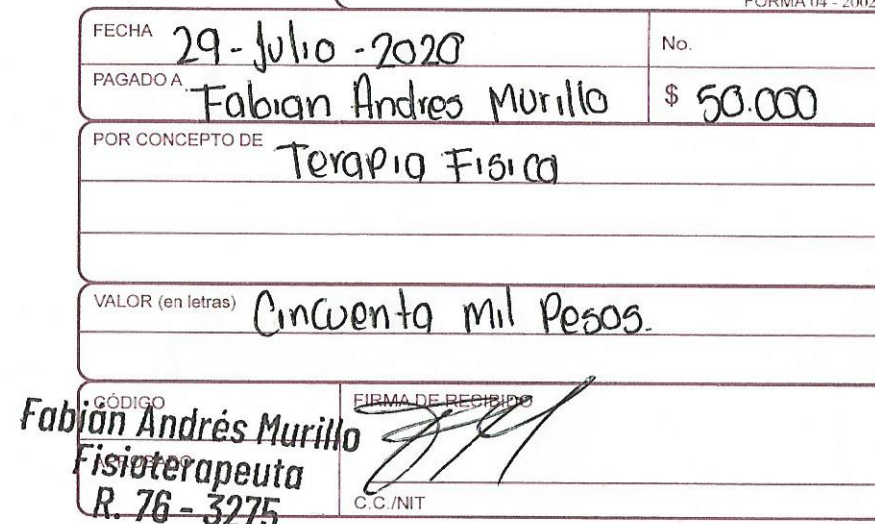 FORMA 04 - 2002
FECHA 29-Julio-2020 No.
PAGADO A Fabian Andres Murillo $ 50.000
POR CONCEPTO DE Terapia Fisica
VALOR (en letras) Cincuenta mil Pesos.
CÓDIGO FIRMA DE RECIBIDO
Fabián Andrés Murillo
APROBADO
Fisioterapeuta
R. 76 - 3275 C.C./NIT